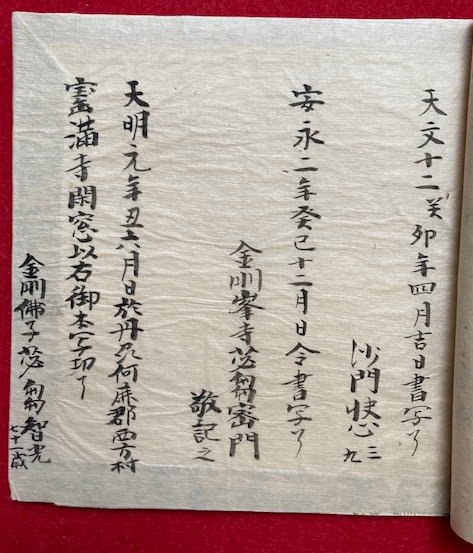 天文十二癸卯年四月吉日書写了
沙門 三九
安永二年癸巳十二月日令書写了
金剛峯寺苾蒭密門
敬記之
天明元年丑六月日於丹州何鹿郡西方村
満寺閑窓以右御本写了
金剛佛子苾蒭智光